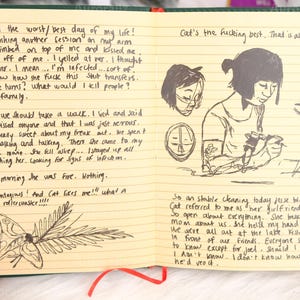 the worst/best day of my life!
another session on my arm
climbed on top of me and kissed me
off of me. I yelled at her. I thought
I mean... I'm infected...sort of.
how the fuck this shit transfers.
turns? what would I tell people?
family.
we should take a walk. I lied and said
missed anyone and that I was just nervous.
sweet about my freak out. We spent
walking and talking. Then she came to my
She fell asleep... I stayed up all
her. Looking for signs of infection.
morning she was fine. Nothing.
contagious! And Cat likes me!!! what a
rollercoaster!!!!
Cat's the fucking best. That is all
So in
cleaning today Jesse
Cat referred to me as 'her girlfriend'
So open about everything. She
mom about us. She held my hand
we were all out at the lake
in front of our friends. Everyone
to know except for Joel. Should I
I don't know. I don't know how
he'd react.